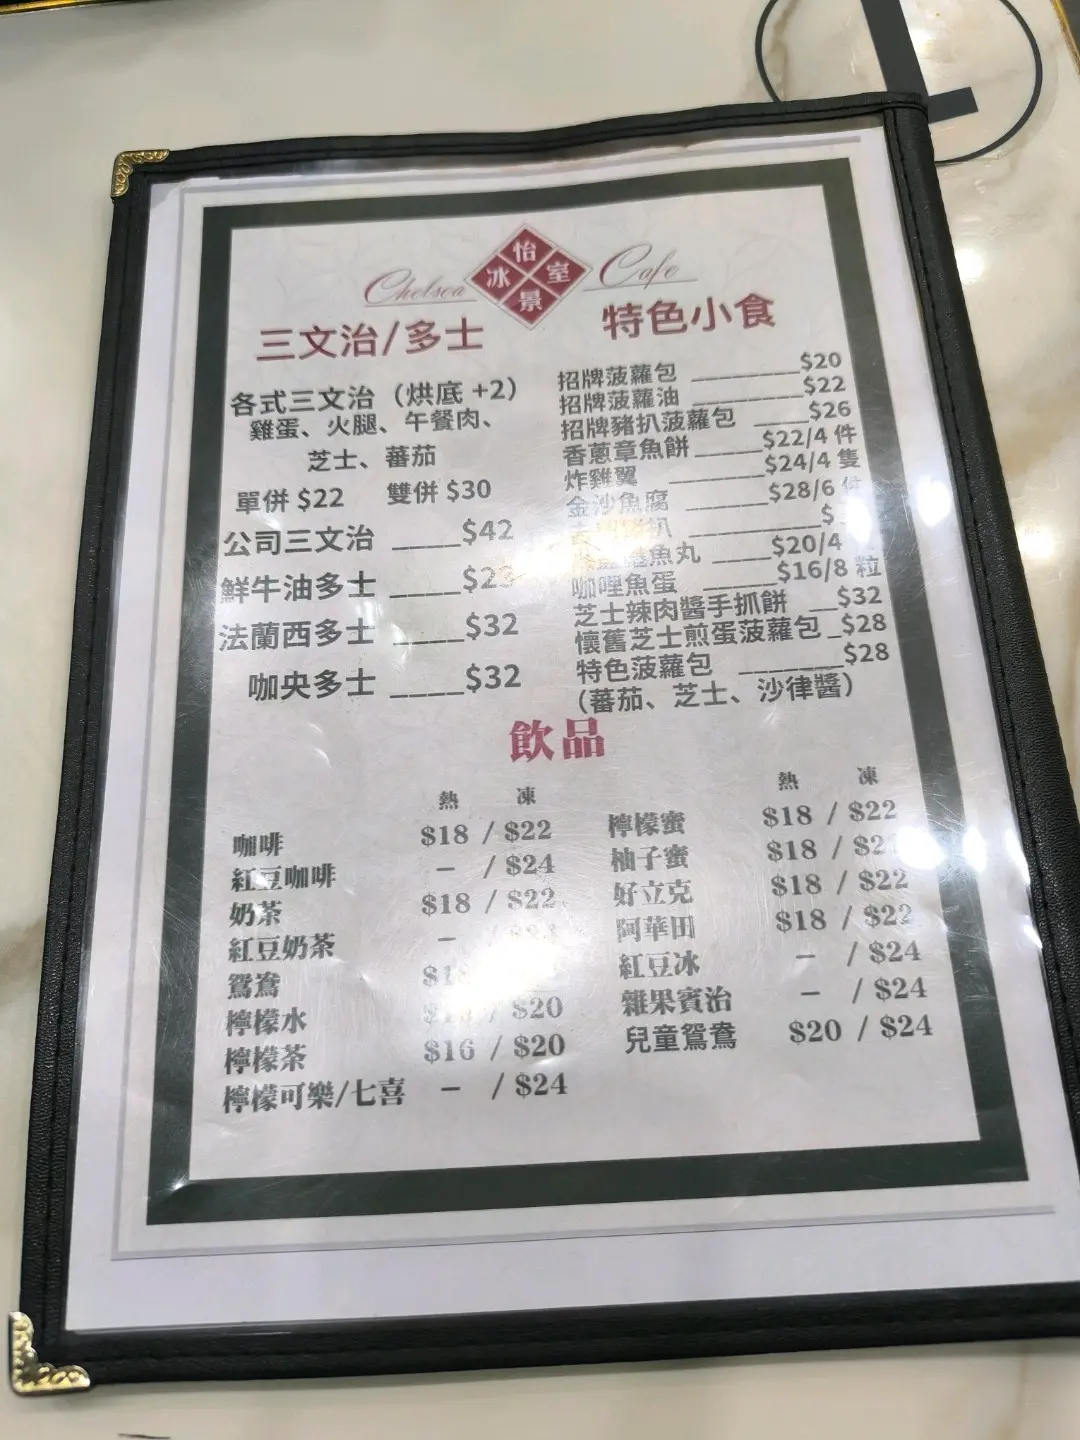 Chelsea Cafe
怡
冰 室
景
三文治/多士
各式三文治（烘底 +2）
雞蛋、火腿、午餐肉、
芝士、蕃茄
單併 $22 雙併 $30
公司三文治 ____$42
鮮牛油多士 ____
法蘭西多士 ____$32
咖央多士 ____$32
特色小食
招牌菠蘿包 ________$20
招牌菠蘿油 ________$22
招牌豬扒菠蘿包 ____$26
香蔥章魚餅 _____$22/4 件
炸雞翼 _______$24/4 隻
金沙魚腐 ______$28/6
魚丸 ____$20/4
咖哩魚蛋 _____$16/8 粒
芝士辣肉醬手抓餅 __$32
懷舊芝士煎蛋菠蘿包 _$28
特色菠蘿包 ________$28
（蕃茄、芝士、沙律醬）
飲品
熱 凍
咖啡 $18 / $22
紅豆咖啡 – / $24
奶茶 $18 / $22
紅豆奶茶 –
鴛鴦
檸檬水 / $20
檸檬茶 $16 / $20
檸檬可樂/七喜 – / $24
熱 凍
檸檬蜜 $18 / $22
柚子蜜 $18 /
好立克 $18 / $22
阿華田 $18 / $22
紅豆冰 – / $24
雜果賓治 – / $24
兒童鴛鴦 $20 / $24